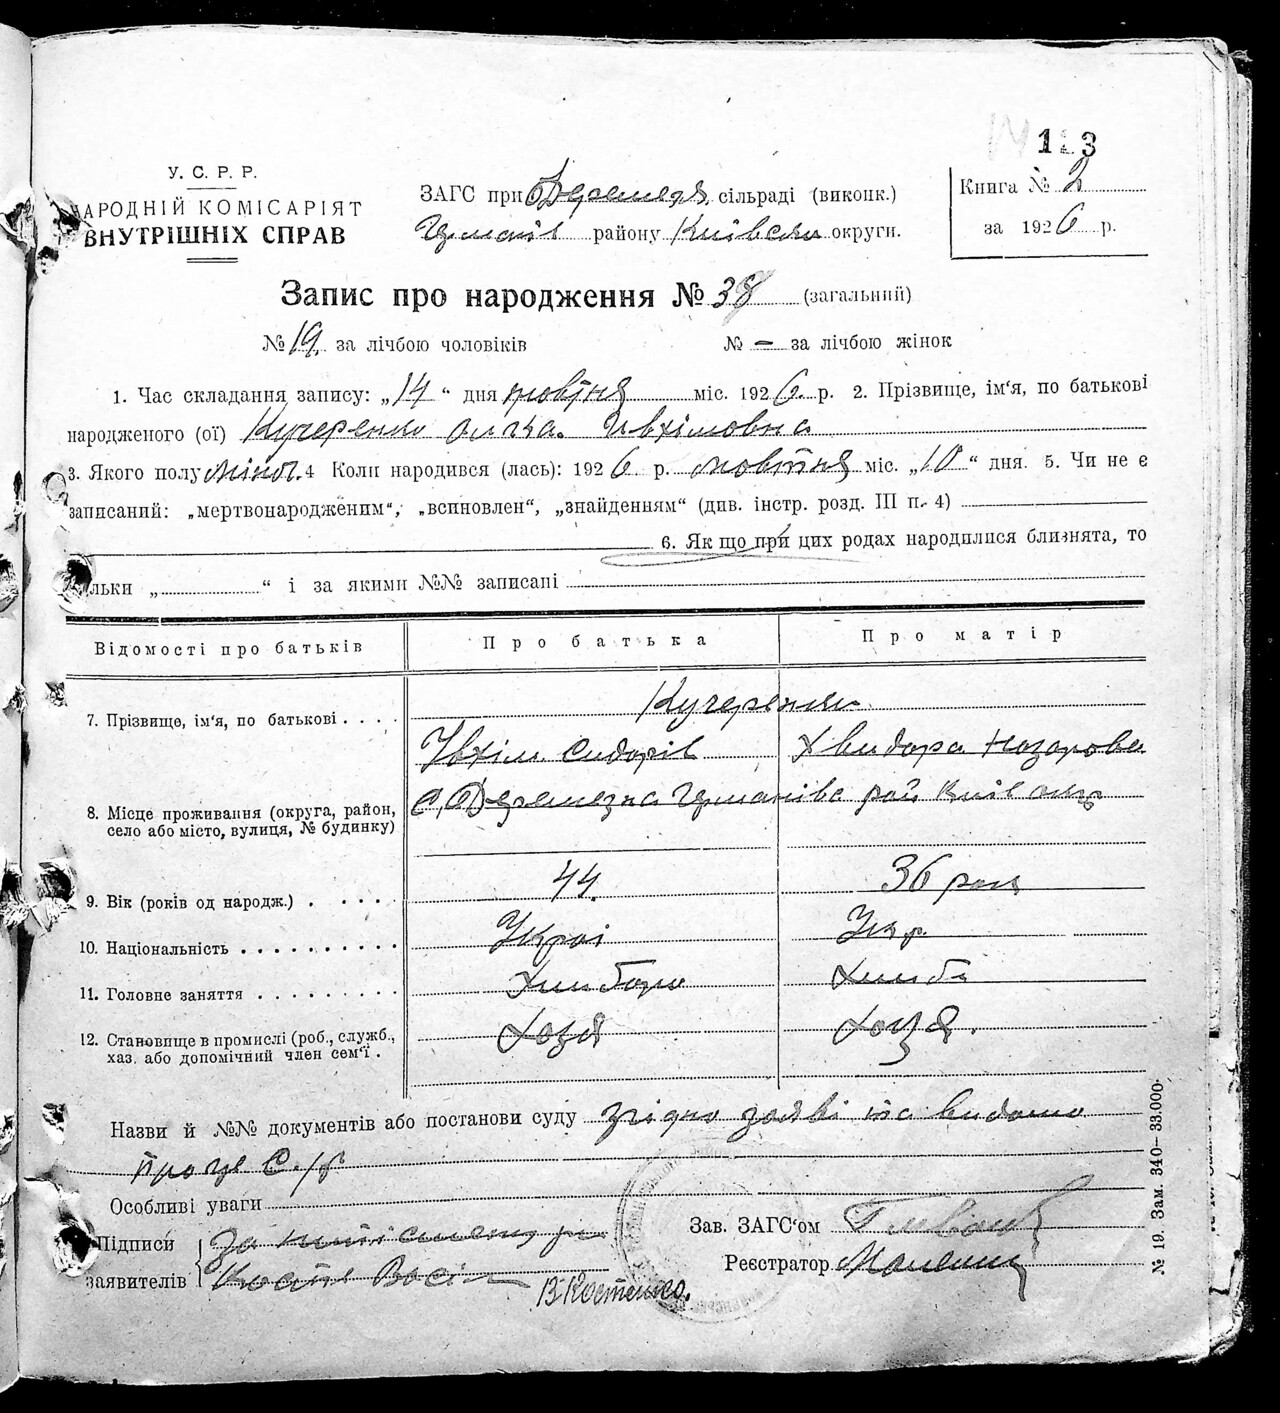 123
У. С. Р. Р.
НАРОДНІЙ КОМІСАРІЯТ
ВНУТРІШНІХ СПРАВ
ЗАГС при сільраді (виконк.)
району Київськ округи.
Книга № 2
за 1926 р.
Запис про народження № 38 (загальний)
№ 19 за лічбою чоловіків № — за лічбою жінок
1. Час складання запису: „14“ дня жовтня міс. 1926 р. 2. Прізвище, ім‘я, по батькові
народженого (ої) Кучеренко Ивхімовна
3. Якого полу жіноч. 4 Коли народився (лась): 1926 р. жовтня міс. „10“ дня. 5. Чи не є
записаний: „мертвонародженим“, „всиновлен“, „знайденням“ (див. інстр. розд. III п. 4)
6. Як що при цих родах народилися близнята, то
кільки „ “ і за якими №№ записані
Відомості про батьків Про батька Про матір
7. Прізвище, ім‘я, по батькові . . . . Кучеренки
Ивхім Сидорів Хвидора Назарова
8. Місце проживання (округа, район,
село або місто, вулиця, № будинку)
с. Деремезна Германівс рай Київ окр
9. Вік (років од народж.) . . . . . 44. 36 рок
10. Національність . . . . . . . . . . Украі Укр.
11. Головне заняття . . . . . . . . . Хлибороб Хлиб
12. Становище в промислі (роб., служб.,
хаз. або допомічний член сем‘ї .
Хозя Хозя.
Назви й №№ документів або постанови суду згідно заяві та видано
про це С./р
Особливі уваги
Підписи За
заявителів Костен Васіл В Костенко.
Зав. ЗАГС‘ом
Реєстратор
№ 19. Зам. 340—33.000.